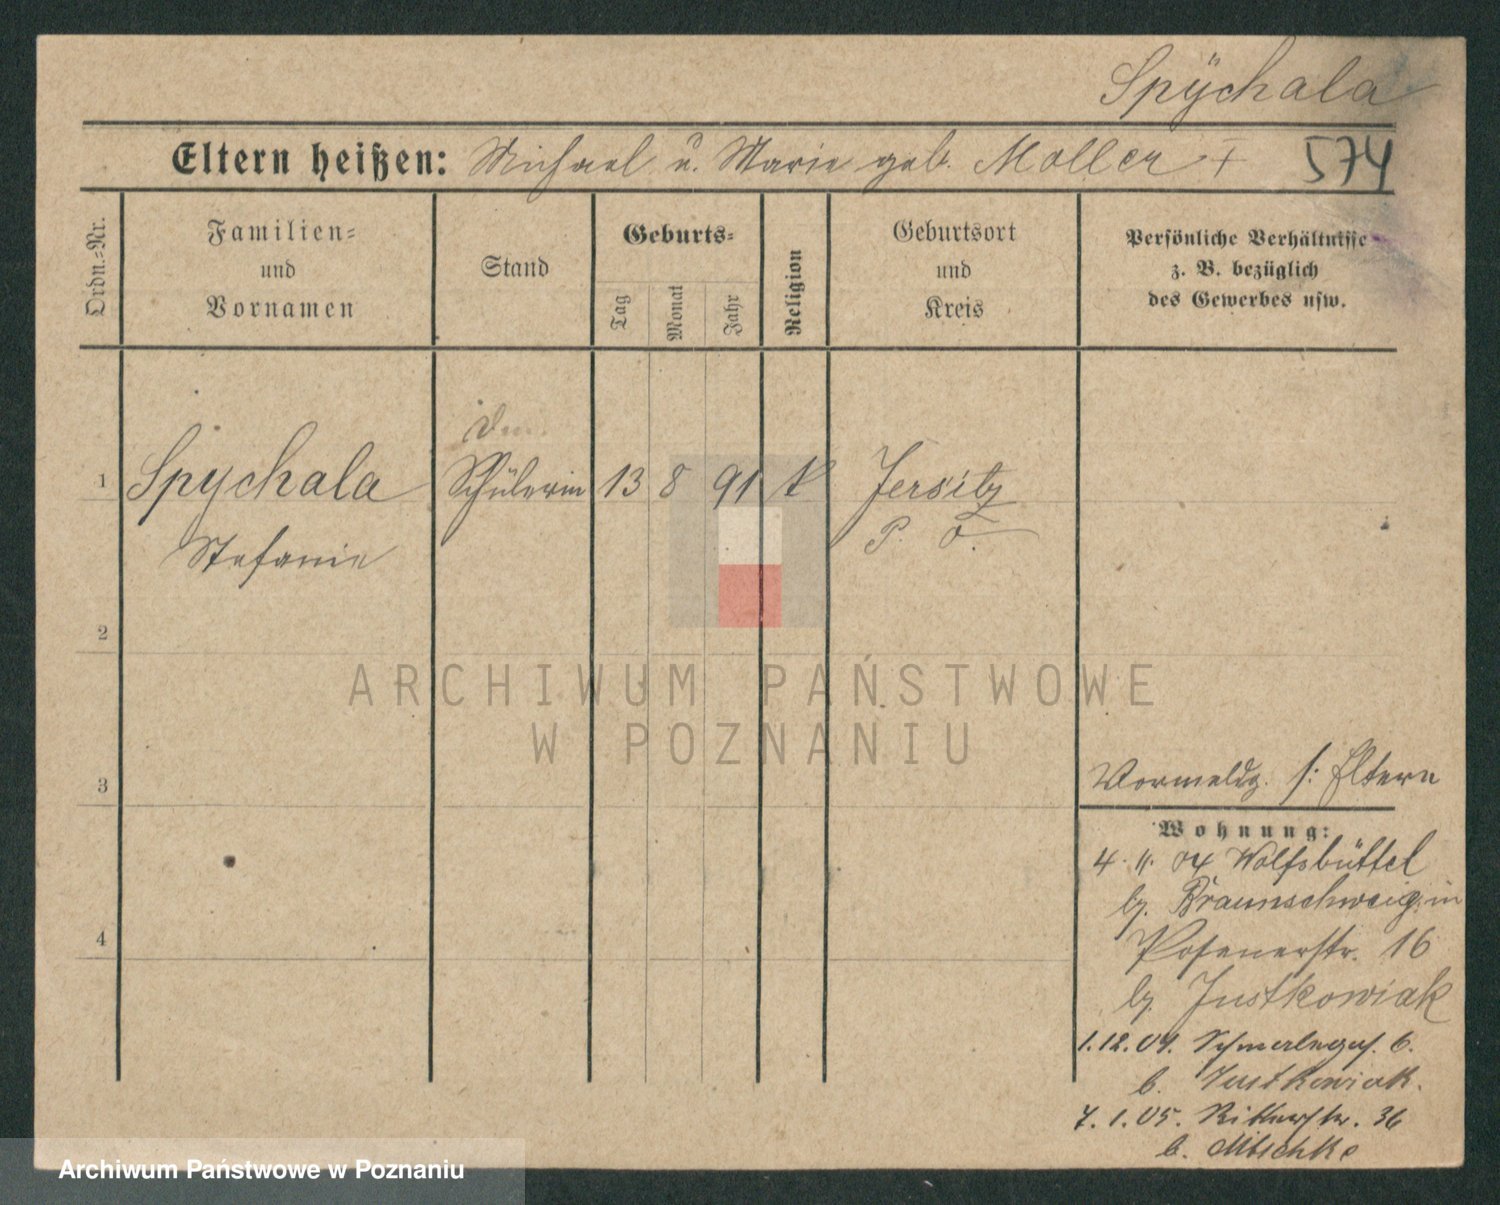 Spÿchala
Eltern heißen: Michael u. Marie geb. Moller †
574
Ordn.-Nr.
Familien-
und
Vornamen
Stand
Geburts-
Tag
Monat
Jahr
Religion
Geburtsort
und
Kreis
Persönliche Verhältnisse
z. B. bezüglich
des Gewerbes usw.
1 Spychala Schülerin 13 8 91 k Jersitz
Stefanie P. O.
2
3
4
ARCHIWUM PAŃSTWOWE
W POZNANIU
Vormeldg. s: Eltern
Wohnung:
4. 11. 04 Wolfsbüttel
bz. Braunschweig in
Posenerstr. 16
bz. Justkowiak
1.12.04. 6.
b. Justkowiak.
7. 1. 05. Ritterstr. 36
b. Mitschke
Archiwum Państwowe w Poznaniu